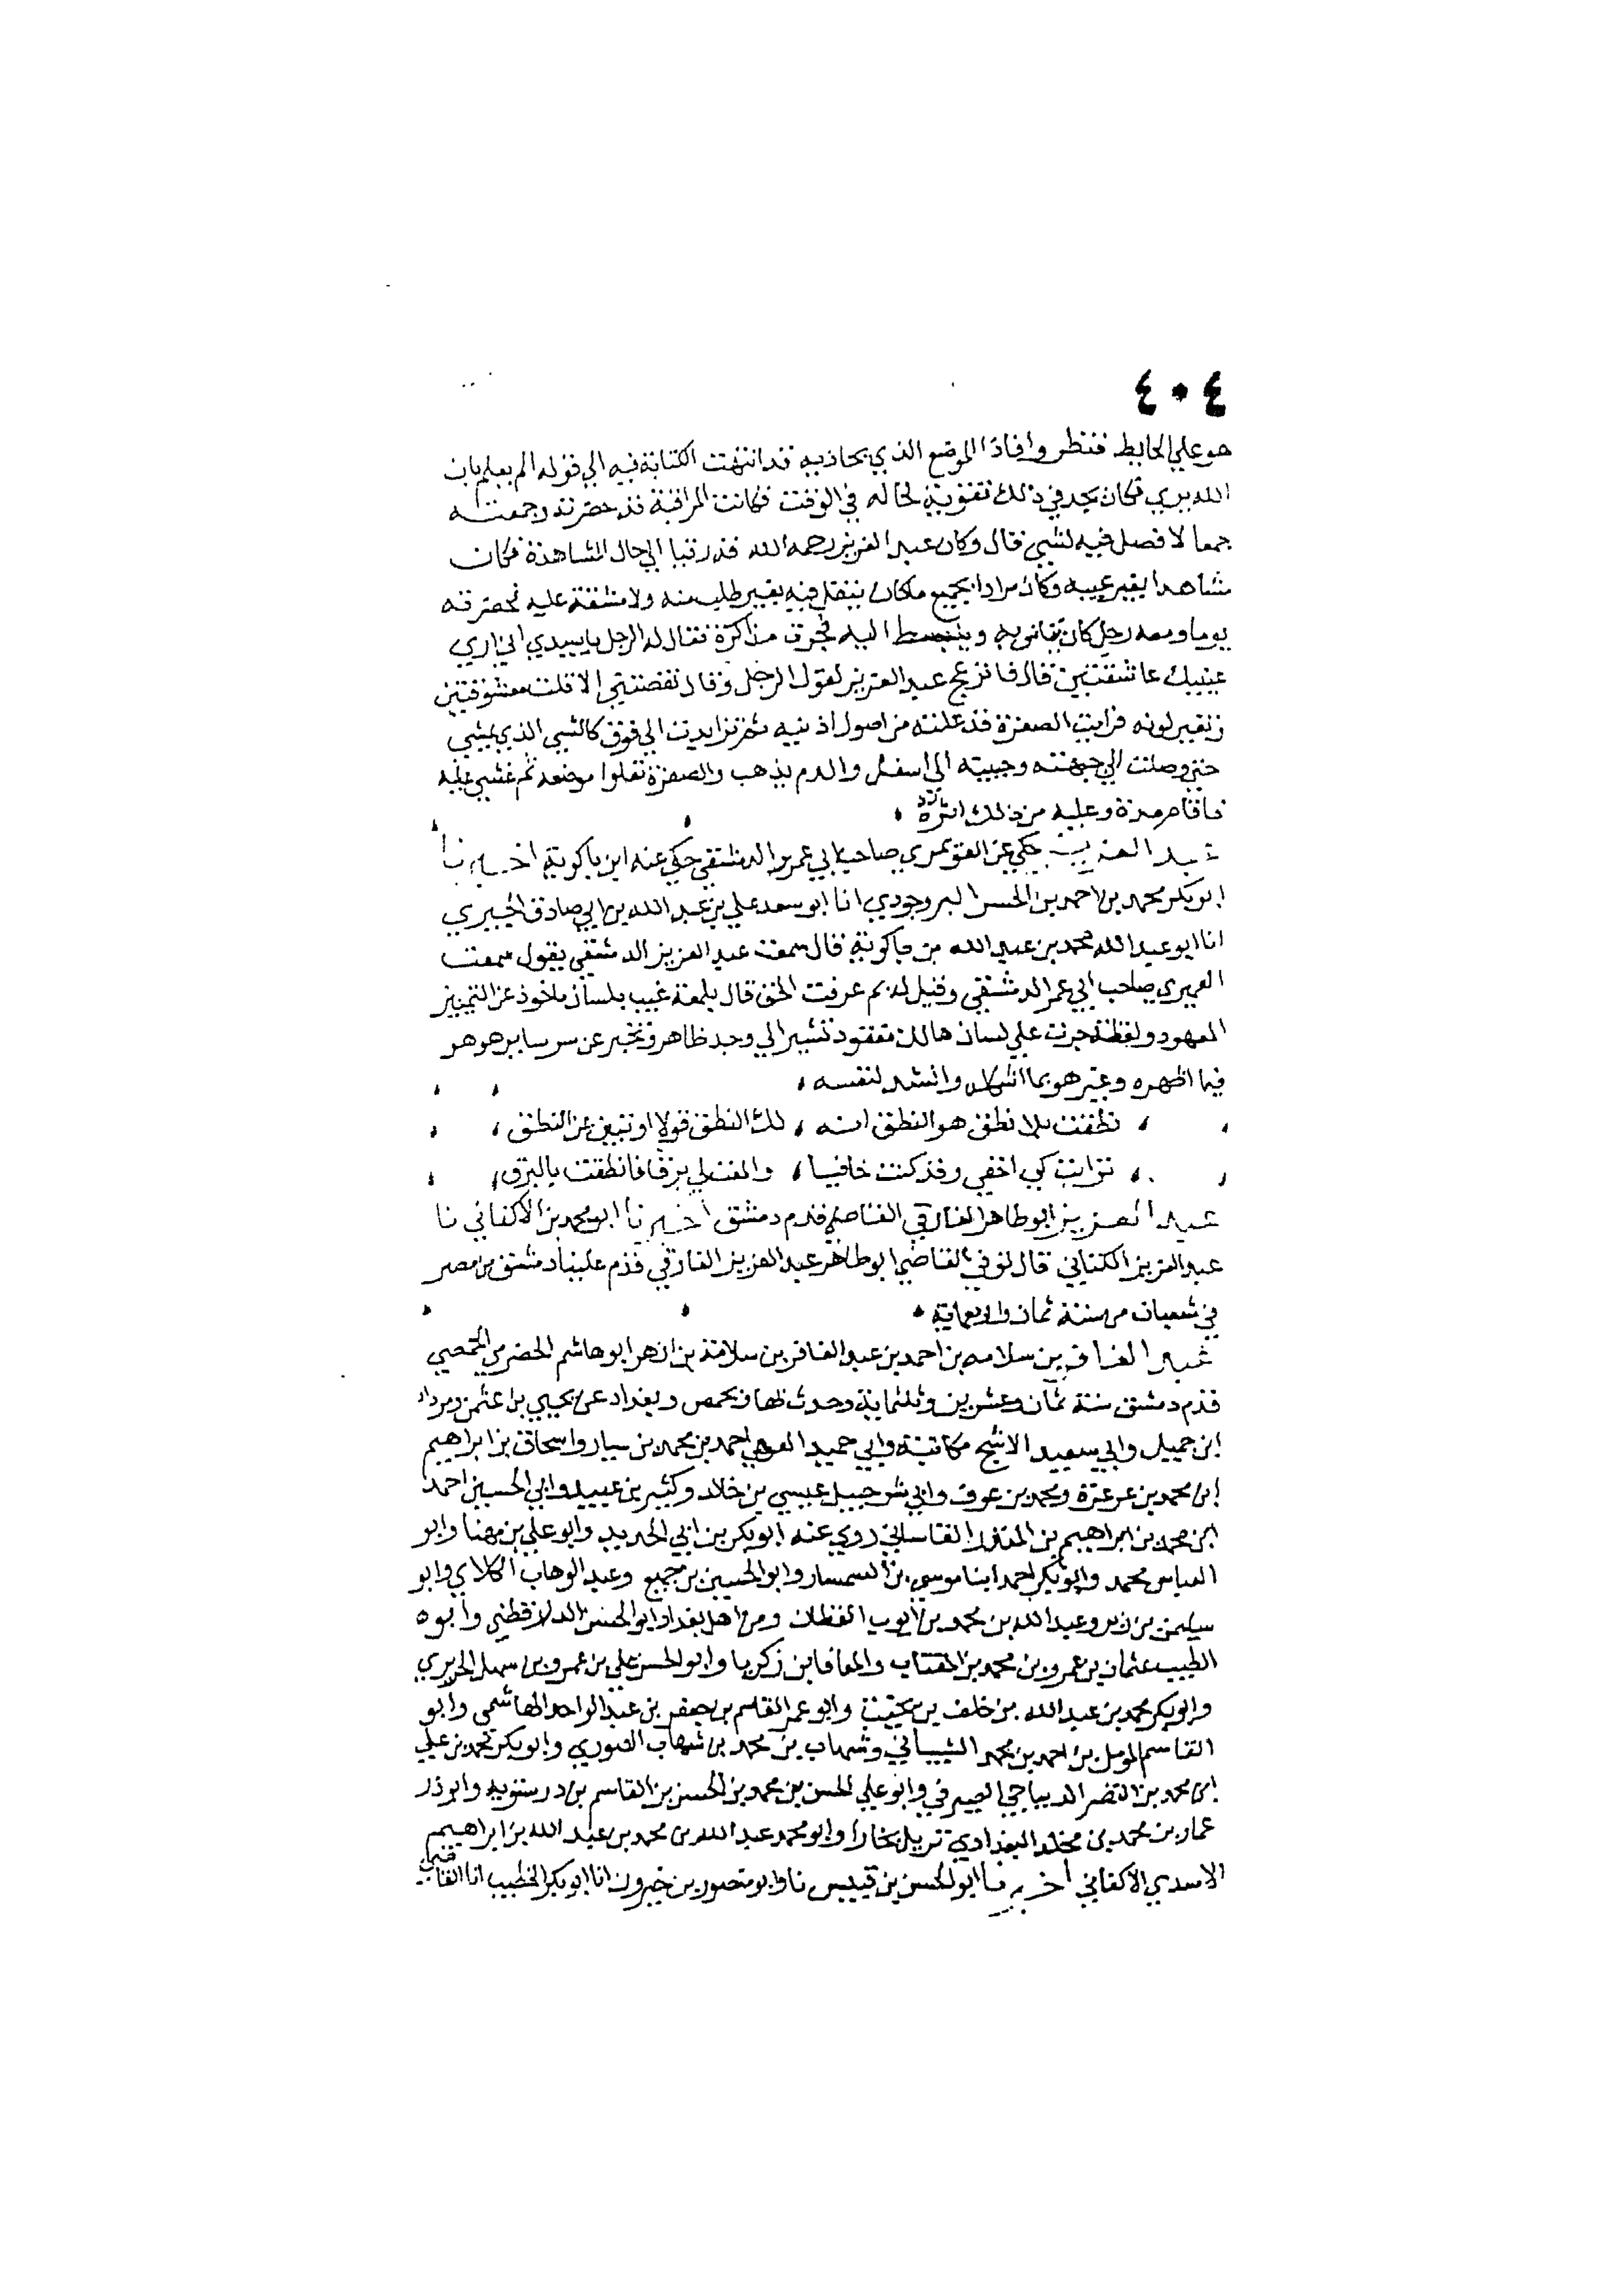 ٤٠٤
هو علي الحايط فنظر وافاذا الموضع الذي يحاذيه قد انتهت الكتابة فيه الي قوله الم يعلم بان
الله يري فكان يجد في ذلك تقوية لحاله في الوقت فكانت المراقبة قد حضرته وجمعته
جمعا لا فصل فيه لشي قال وكان عبد العزيز رحمه الله قد رتبا الي حال المشاهدة فكان
مشاهدا بغير عيبه وكان مرادا بجميع مكان ينقل فيه بغير طلب منه ولا مشقة عليه فحضرته
يوما ومعه رجل كان وينبسط اليه فجرت مذاكرة فقال له الرجل يا سيدي اني اري
عينيك عاشقتين قال فانزعج عبد العزيز لقول الرجل وقال نقصتني الا قلت معشوقتين
وتغير لونه فرايت الصفرة قد علته من اصول اذنيه ثم تزايدت الي فوق كالشي الذي يمشي
حتي وصلت الي جبهته وجبيته الي اسفل والدم يذهب والصفرة تعلوا موضعه ثم غشي عليه
فاقام مدة وعليه من ذلك اثره
عبد العزيز حكي عن صاحب ابي عمرو الدمشقي حكي عنه ابن باكوية اخبرنا
ابو بكر محمد بن احمد بن الحسن البروجودي انا ابو سعد علي بن عبد الله بن ابي صادق الحيري
انا ابو عبد الله محمد بن عبد الله بن باكوية قال سمعت عبد العزيز الدمشقي يقول سمعت
صاحب ابي عمر الدمشقي وقيل له بم عرفت الحق قال بلمعة غيب بلسان ماخوذ عن التمييز
المعهود ولفظة جرت علي لسان هالك مفقود تشير الي وجد ظاهر وتخبر عن سر ساير هو هو
فيما اظهره وغير هو بما اشكل وانشد لنفسه
نطقت بلا نطق هو النطق انه ، لك النطق قولا او تبين عن النطق ،
ترايت كي اخفي وقد كنت خافيا ، والمعت لي برقا فانطقت بالبرق ،
عبد العزيز ابو طاهر الفارقي القاضي قدم دمشق اخبرنا ابو محمد بن الاكفاني نا
عبد العزيز الكتاني قال توفي القاضي ابو طاهر عبد العزيز الفارقي قدم علينا دمشق من مصر
في شعبان من سنة ثمان واربعماية
عبد الغافر بن سلامه بن احمد بن عبد الغافر بن سلامة بن ازهر ابو هاشم الحضرمي الحمصي
قدم دمشق سنة ثمان وعشرين وثلثماية وحدث بها وبحمص وبغداد عن يحيي بن عثمن ومرداد
ابن جميل وابي سعيد الاشج مكاتبة وابي حميد العوهي احمد بن محمد بن سيار واسحاق بن ابراهيم
ابن محمد بن عرعرة ومحمد بن عوف وابي شرحبيل عيسي بن خالد وكثير بن عبيد وابي الحسين احمد
ابن محمد بن ابراهيم بن روي عنه ابو بكر بن ابي الحديد وابو علي بن مهنا وابو
العباس محمد وابو بكر احمد ابنا موسي بن السمسار وابو الحسين بن جميع وعبد الوهاب الكلابي وابو
سليمن بن زبر وعبد الله بن محمد بن ايوب القطان ومن اهل بغداد ابو الحسن الدارقطني وابوه
الطيب عثمان بن عمرو بن محمد بن المنتاب والمعافا بن زكريا وابو الحسن علي بن عمرو بن سهل الحريري
وابو بكر محمد بن عبد الله بن خلف بن بخيت وابو عمر القاسم بن جعفر بن عبد الواحد الهاشمي وابو
القاسم المومل بن احمد بن محمد الشيباني وشهاب بن محمد بن شهاب الصوري وابو بكر محمد بن علي
ابن محمد بن النضر الديباجي الصيرفي وابو علي الحسن بن محمد بن الحسن بن القاسم بن درستويه وابو ذر
عمار بن محمد بن مخلد البغدادي نزيل بخارا وابو محمد عبد الله بن محمد بن عبد الله بن ابراهيم
الاسدي الاكفاني اخبرنا ابو الحسن بن قبيس نا وابو منصور بن خيرون انا ابو بكر الخطيب انا القاضي